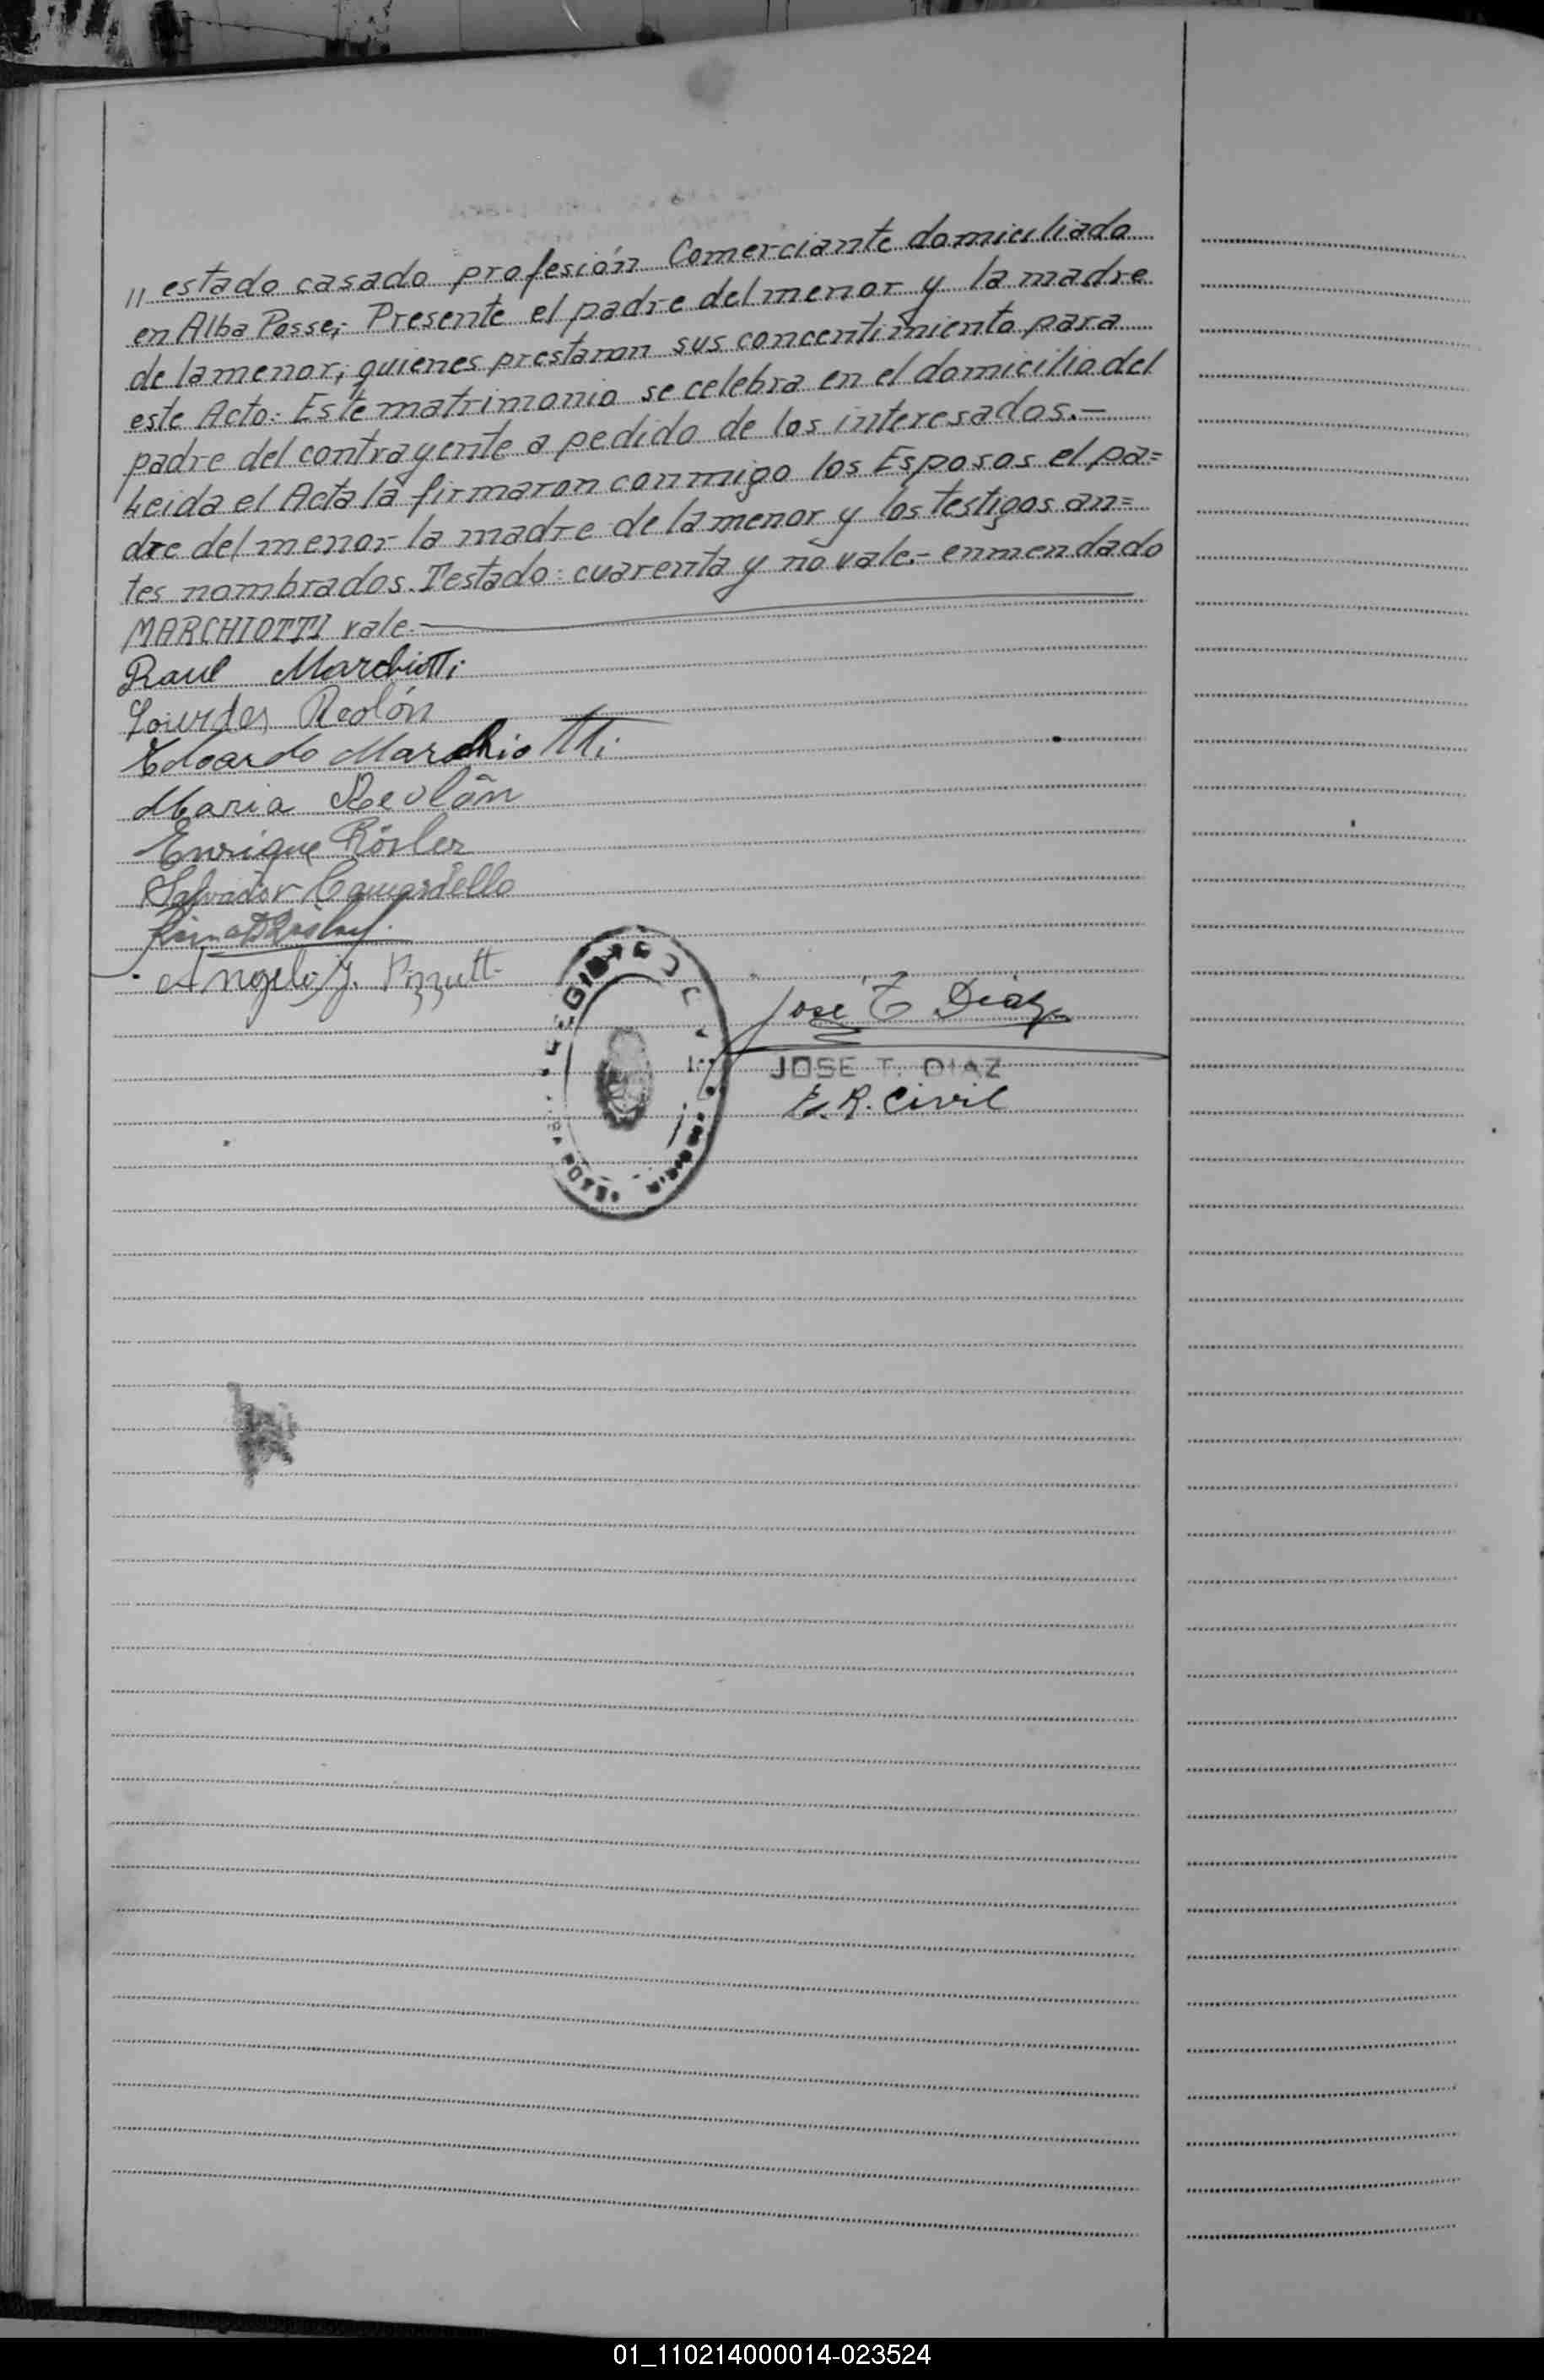 " estado casado profesión Comerciante domiciliado
en Alba Posse;- Presente el padre del menor y la madre
de la menor; quienes prestaron sus concentimiento para
este Acto: Este matrimonio se celebra en el domicilio del
padre del contrayente a pedido de los interesados.—
Leida el Acta la firmaron conmigo los Esposos el pa=
dre del menor la madre de la menor y los testigos an=
tes nombrados. Testado: cuarenta y no vale.- enmendado
MARCHIOTTI vale.—
Raul Marchiotti
Lourdes Reolón
Edoardo Marchiotti
Maria Reolón
Enrique Rösler
Salvador Camardello
Angelo J. Pizzutt
José T Diaz
JOSE T. DIAZ
E. R. Civil
REGISTRO
01_110214000014-023524